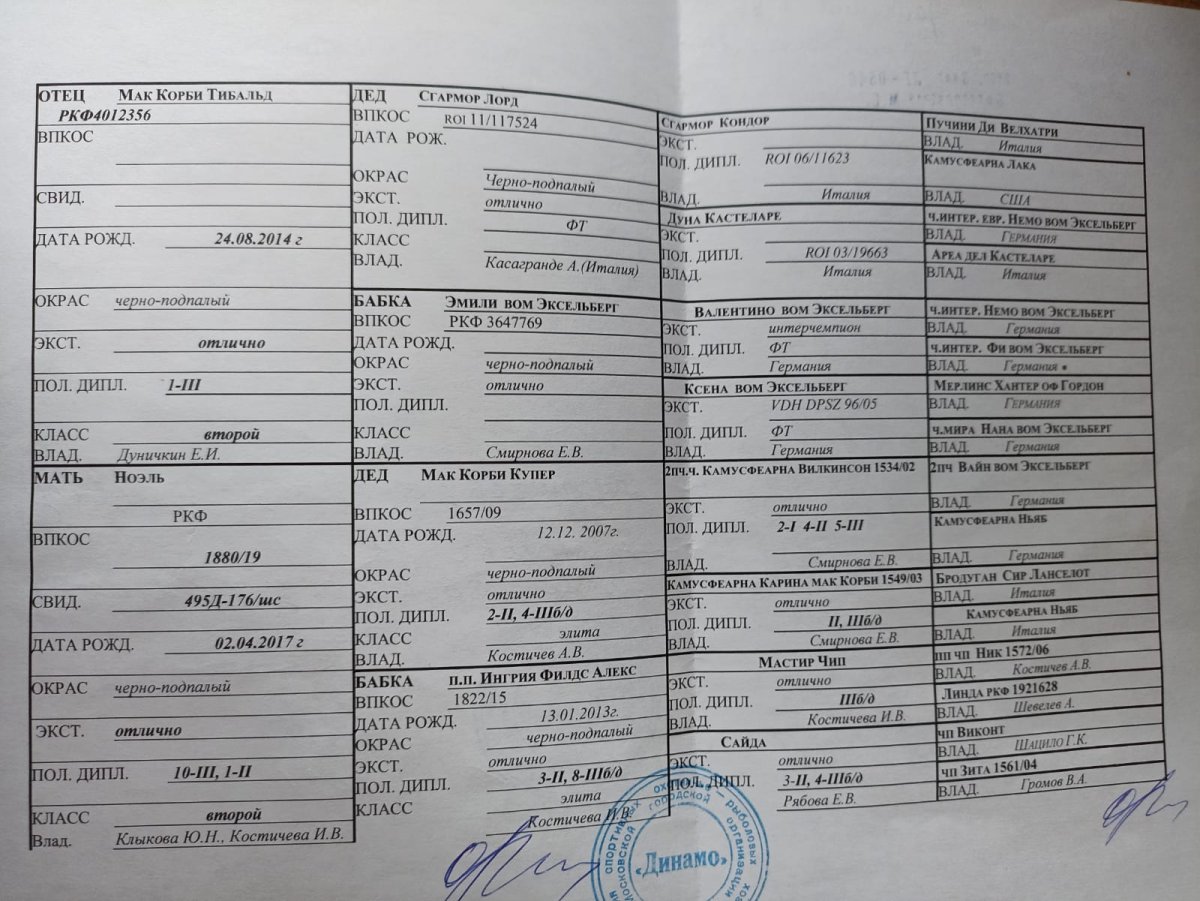 ОТЕЦ МАК КОРБИ ТИБАЛЬД
РКФ4012356
ВПКОС
СВИД.
ДАТА РОЖД. 24.08.2014 г
ОКРАС черно-подпалый
ЭКСТ. отлично
ПОЛ. ДИПЛ. 1-III
КЛАСС второй
ВЛАД. Дуничкин Е.И.
МАТЬ НОЭЛЬ
РКФ
ВПКОС
1880/19
СВИД. 495Д-176/шс
ДАТА РОЖД. 02.04.2017 г
ОКРАС черно-подпалый
ЭКСТ. отлично
ПОЛ. ДИПЛ. 10-III, 1-II
КЛАСС второй
Влад. Клыкова Ю.Н., Костичева И.В.
ДЕД СГАРМОР ЛОРД
ВПКОС ROI 11/117524
ДАТА РОЖ.
ОКРАС Черно-подпалый
ЭКСТ. отлично
ПОЛ. ДИПЛ. ФТ
КЛАСС
ВЛАД. Касагранде А.(Италия)
БАБКА ЭМИЛИ ВОМ ЭКСЕЛЬБЕРГ
ВПКОС РКФ 3647769
ДАТА РОЖД.
ОКРАС черно-подпалый
ЭКСТ. отлично
ПОЛ. ДИПЛ.
КЛАСС
ВЛАД. Смирнова Е.В.
ДЕД МАК КОРБИ КУПЕР
ВПКОС 1657/09
ДАТА РОЖД. 12.12. 2007г.
ОКРАС черно-подпалый
ЭКСТ. отлично
ПОЛ. ДИПЛ. 2-II, 4-IIIб/д
КЛАСС элита
ВЛАД. Костичев А.В.
БАБКА П.П. ИНГРИЯ ФИЛДС АЛЕКС
ВПКОС 1822/15
ДАТА РОЖД. 13.01.2013г.
ОКРАС черно-подпалый
ЭКСТ. отлично
ПОЛ. ДИПЛ. 3-II, 8-IIIб/д
КЛАСС элита
Костичева И.В.
СГАРМОР КОНДОР
ЭКСТ.
ПОЛ. ДИПЛ. ROI 06/11623
ВЛАД. Италия
ДУНА КАСТЕЛАРЕ
ЭКСТ.
ПОЛ. ДИПЛ. ROI 03/19663
ВЛАД. Италия
ВАЛЕНТИНО ВОМ ЭКСЕЛЬБЕРГ
ЭКСТ. интерчемпион
ПОЛ. ДИПЛ. ФТ
ВЛАД. Германия
КСЕНА ВОМ ЭКСЕЛЬБЕРГ
ЭКСТ. VDH DPSZ 96/05
ПОЛ. ДИПЛ. ФТ
ВЛАД. Германия
2ПЧ.Ч. КАМУСФЕАРНА ВИЛКИНСОН 1534/02
ЭКСТ. отлично
ПОЛ. ДИПЛ. 2-I 4-II 5-III
ВЛАД. Смирнова Е.В.
КАМУСФЕАРНА КАРИНА МАК КОРБИ 1549/03
ЭКСТ. отлично
ПОЛ. ДИПЛ. II, IIIб/д
ВЛАД. Смирнова Е.В.
МАСТИР ЧИП
ЭКСТ. отлично
ПОЛ. ДИПЛ. IIIб/д
ВЛАД. Костичева И.В.
САЙДА
ЭКСТ. отлично
ПОЛ. ДИПЛ. 3-II, 4-IIIб/д
Рябова Е.В.
ПУЧИНИ ДИ ВЕЛХАТРИ
ВЛАД. Италия
КАМУСФЕАРНА ЛАКА
ВЛАД. США
Ч.ИНТЕР. ЕВР. НЕМО ВОМ ЭКСЕЛЬБЕРГ
ВЛАД. ГЕРМАНИЯ
АРЕА ДЕЛ КАСТЕЛАРЕ
ВЛАД. Италия
Ч.ИНТЕР. НЕМО ВОМ ЭКСЕЛЬБЕРГ
ВЛАД. Германия
Ч.ИНТЕР. ФИ ВОМ ЭКСЕЛЬБЕРГ
ВЛАД. Германия
МЕРЛИНС ХАНТЕР ОФ ГОРДОН
ВЛАД. ГЕРМАНИЯ
Ч.МИРА НАНА ВОМ ЭКСЕЛЬБЕРГ
ВЛАД. Германия
2ПЧ ВАЙН ВОМ ЭКСЕЛЬБЕРГ
ВЛАД. Германия
КАМУСФЕАРНА НЬЯБ
ВЛАД. Германия
БРОДУГАН СИР ЛАНСЕЛОТ
ВЛАД. Италия
КАМУСФЕАРНА НЬЯБ
ВЛАД. Италия
ПП ЧП НИК 1572/06
ВЛАД. Костичев А.В.
ЛИНДА РКФ 1921628
ВЛАД. Шевелев А.
ЧП ВИКОНТ
ВЛАД. Шацило Г.К.
ЧП ЗИТА 1561/04
ВЛАД. Громов В.А.
спортивных охотничье – рыболовных
Московской городской организации
«Динамо»